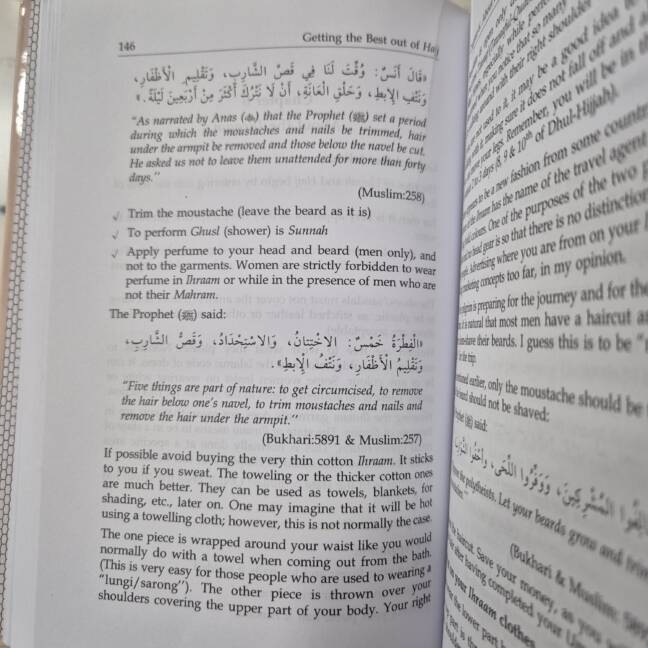 146
Getting the Best out of Haj
«قَالَ أَنَسٌ: وُقِّتَ لَنَا فِي قَصِّ الشَّارِبِ، وَتَقْلِيمِ الْأَظْفَارِ،
وَنَتْفِ الْإِبِطِ، وَحَلْقِ الْعَانَةِ، أَنْ لَا نَتْرُكَ أَكْثَرَ مِنْ أَرْبَعِينَ لَيْلَةً.»
"As narrated by Anas (ﷺ) that the Prophet (ﷺ) set a period
during which the moustaches and nails be trimmed, hair
under the armpit be removed and those below the navel be cut.
He asked us not to leave them unattended for more than forty
days."
(Muslim:258)
✓ Trim the moustache (leave the beard as it is)
✓ To perform Ghusl (shower) is Sunnah
✓ Apply perfume to your head and beard (men only), and
not to the garments. Women are strictly forbidden to wear
perfume in Ihraam or while in the presence of men who are
not their Mahram.
The Prophet (ﷺ) said:
«الْفِطْرَةُ خَمْسٌ: الِاخْتِتَانُ، وَالِاسْتِحْدَادُ، وَقَصُّ الشَّارِبِ،
وَتَقْلِيمُ الْأَظْفَارِ، وَنَتْفُ الْإِبِطِ».
"Five things are part of nature: to get circumcised, to remove
the hair below one's navel, to trim moustaches and nails and
remove the hair under the armpit."
(Bukhari:5891 & Muslim:257)
If possible avoid buying the very thin cotton Ihraam. It sticks
to you if you sweat. The toweling or the thicker cotton ones
are much better. They can be used as towels, blankets, for
shading, etc., later on. One may imagine that it will be hot
using a towelling cloth; however, this is not normally the case.
The one piece is wrapped around your waist like you would
normally do with a towel when coming out from the bath.
(This is very easy for those people who are used to wearing a
"lungi/sarong"). The other piece is thrown over your
shoulders covering the upper part of your body. Your right
with their right shoulder
not used to it, it may be a good idea to
it, making sure it does not fall off and
your legs. Remember, you will be in th
3 days (8, 9 & 10th of Dhul-Hijjah).
to be a new fashion from some countr
the Ihraam has the name of the travel agent
colours. One of the purposes of the two
head gear is so that there is no distinction
Advertising where you are from on your
marketing concepts too far, in my opinion.
is preparing for the journey and for the
it is natural that most men have a haircut a
their beards. I guess this is to be "
the trip.
earlier, only the moustache should be
should not be shaved:
said:
الْمُشْرِكِينَ، وَوَفِّرُوا اللِّحَى، وَأَحْفُوا الشَّوَارِبَ
the polytheists. Let your beards grow and trim
(Bukhari & Muslim:
haircut. Save your money, as you
after having completed your
your Ihraam clothes
the lower part
part is